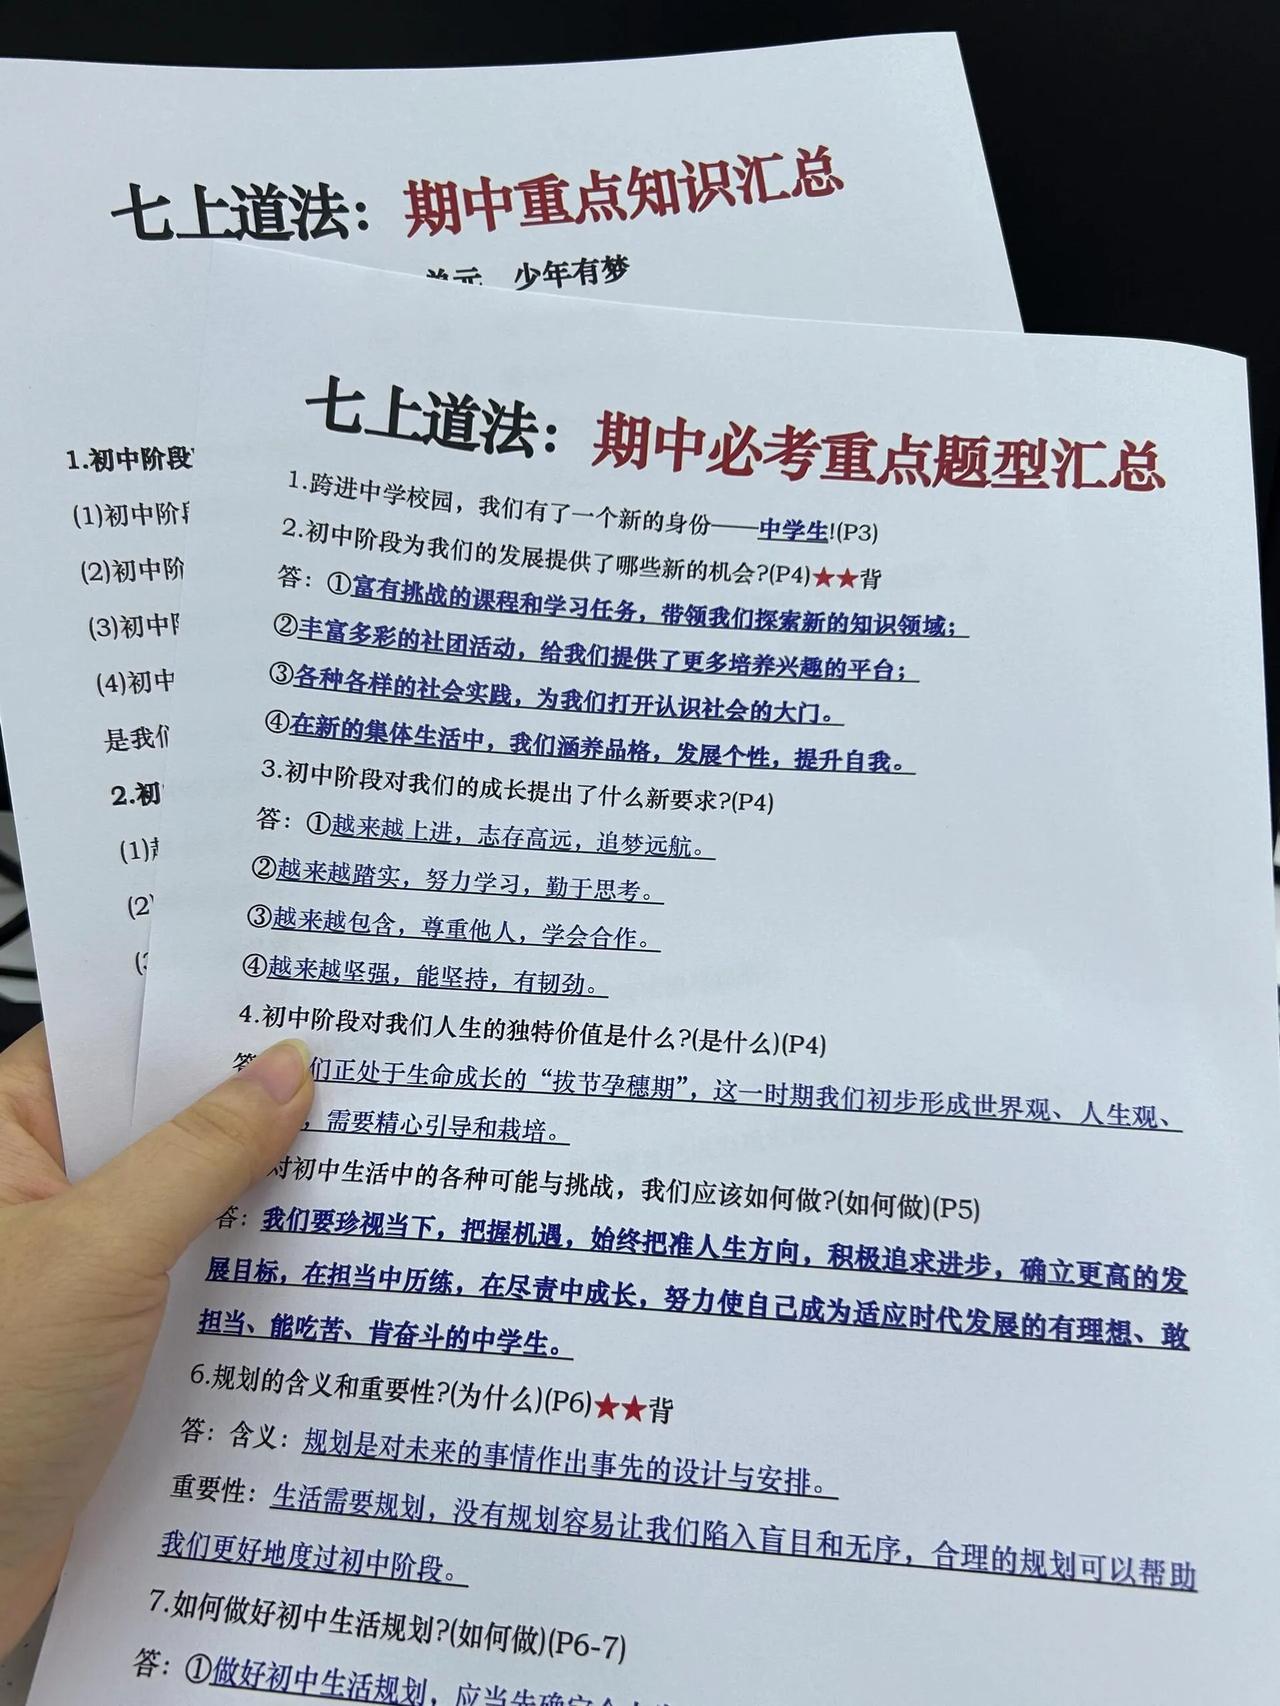 七上道法：期中重点知识汇总
单元 少年有梦
1.初中阶段
(1)初中阶
(2)初中阶
(3)初中
(4)初中
是我们
2.初
(1)
(2)
七上道法：期中必考重点题型汇总
1.跨进中学校园，我们有了一个新的身份——中学生!(P3)
2.初中阶段为我们的发展提供了哪些新的机会?(P4)★★背
答：①富有挑战的课程和学习任务，带领我们探索新的知识领域；
②丰富多彩的社团活动，给我们提供了更多培养兴趣的平台；
③各种各样的社会实践，为我们打开认识社会的大门。
④在新的集体生活中，我们涵养品格，发展个性，提升自我。
3.初中阶段对我们的成长提出了什么新要求?(P4)
答：①越来越上进，志存高远，追梦远航。
②越来越踏实，努力学习，勤于思考。
③越来越包含，尊重他人，学会合作。
④越来越坚强，能坚持，有韧劲。
4.初中阶段对我们人生的独特价值是什么?(是什么)(P4)
答 们正处于生命成长的“拔节孕穗期”，这一时期我们初步形成世界观、人生观、
，需要精心引导和栽培。
对初中生活中的各种可能与挑战，我们应该如何做?(如何做)(P5)
答：我们要珍视当下，把握机遇，始终把准人生方向，积极追求进步，确立更高的发
展目标，在担当中历练，在尽责中成长，努力使自己成为适应时代发展的有理想、敢
担当、能吃苦、肯奋斗的中学生。
6.规划的含义和重要性?(为什么)(P6)★★背
答：含义：规划是对未来的事情作出事先的设计与安排。
重要性：生活需要规划，没有规划容易让我们陷入盲目和无序，合理的规划可以帮助
我们更好地度过初中阶段。
7.如何做好初中生活规划?(如何做)(P6-7)
答：①做好初中生活规划，应当先确定